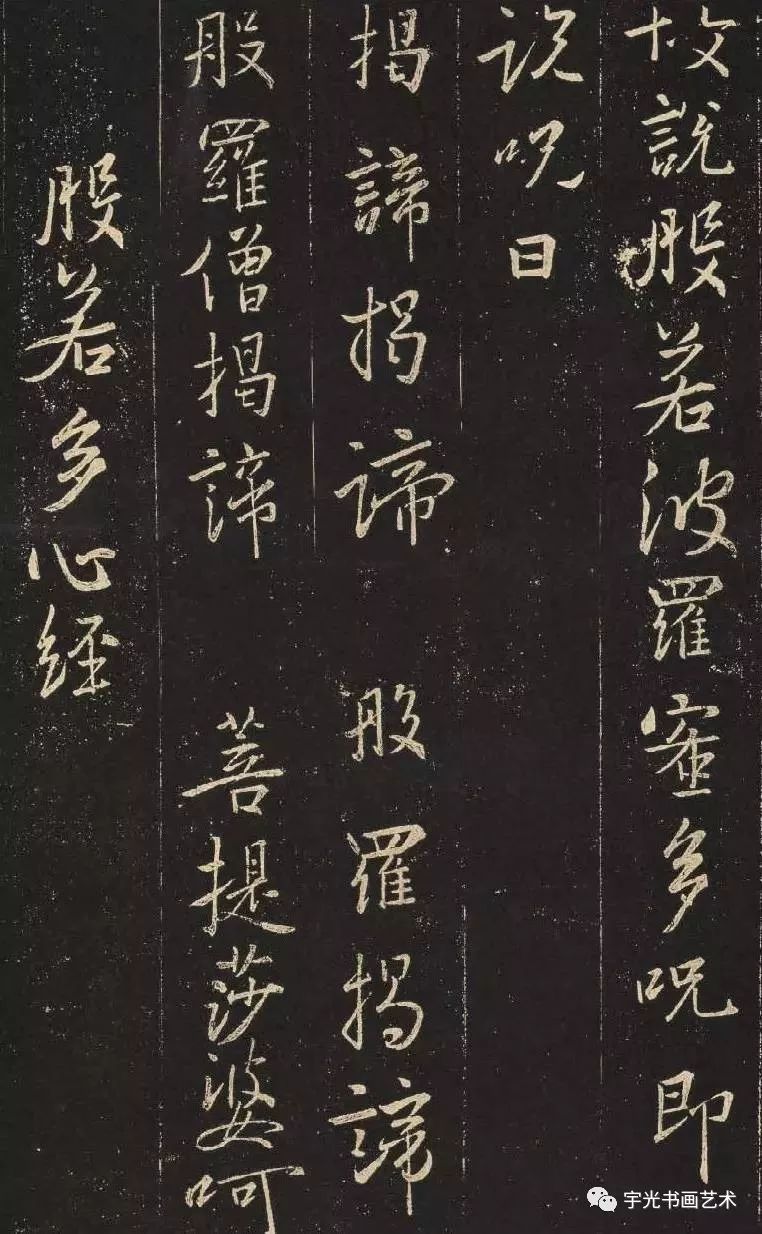 故說般若波羅蜜多呪即
說呪曰
揭諦揭諦 般羅揭諦
般羅僧揭諦 菩提莎婆呵
般若多心經
宇光书画艺术